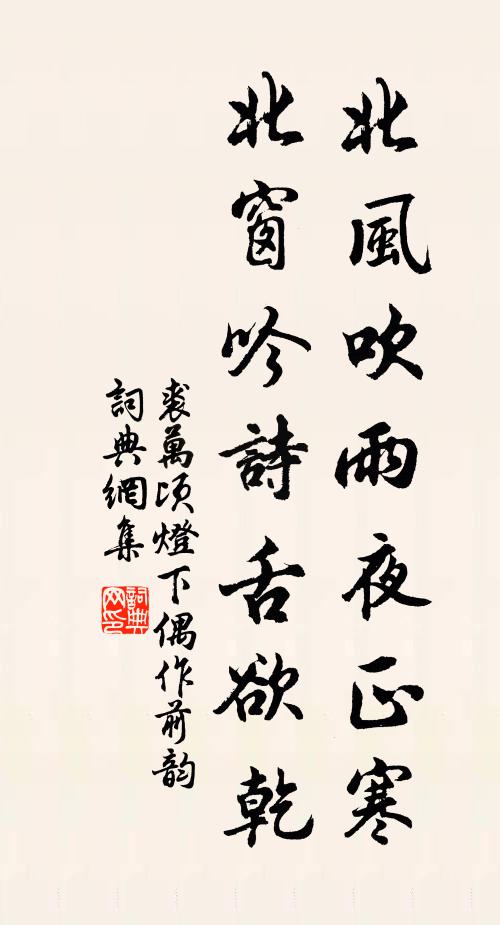 北風吹雨夜正寒
北窗吟詩舌欲乾
裘萬頃燈下偶作前韵
詞典網集
詞典网印